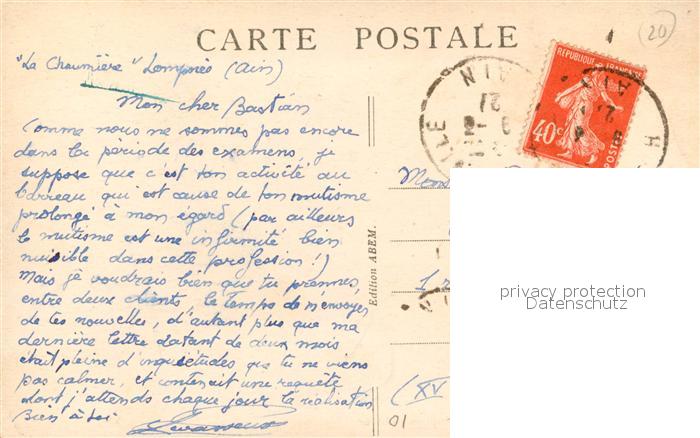 (20)
CARTE POSTALE
"La Chaumière" Lompnès (Ain)
Mon cher Bastian
Comme nous ne sommes pas encore
dans la période des examens, je
suppose que c'est ton activité au
barreau qui est cause de ton mutisme
prolongé à mon égard (par ailleurs
le mutisme est une infirmité bien
nuisible dans cette profession !)
Mais je voudrais bien que tu prennes,
entre deux clients, le temps de m'envoyer
de tes nouvelles, d'autant plus que ma
dernière lettre datant de deux mois
était pleine d'inquiétudes que tu ne viens
pas calmer, et contenait une requête
dont j'attends chaque jour la réalisation
Bien à toi
Edition ABEM.
REPUBLIQUE FRANÇAISE
40c
POSTES
AIN
Mons
1 r
(XV
01
privacy protection
Datenschutz